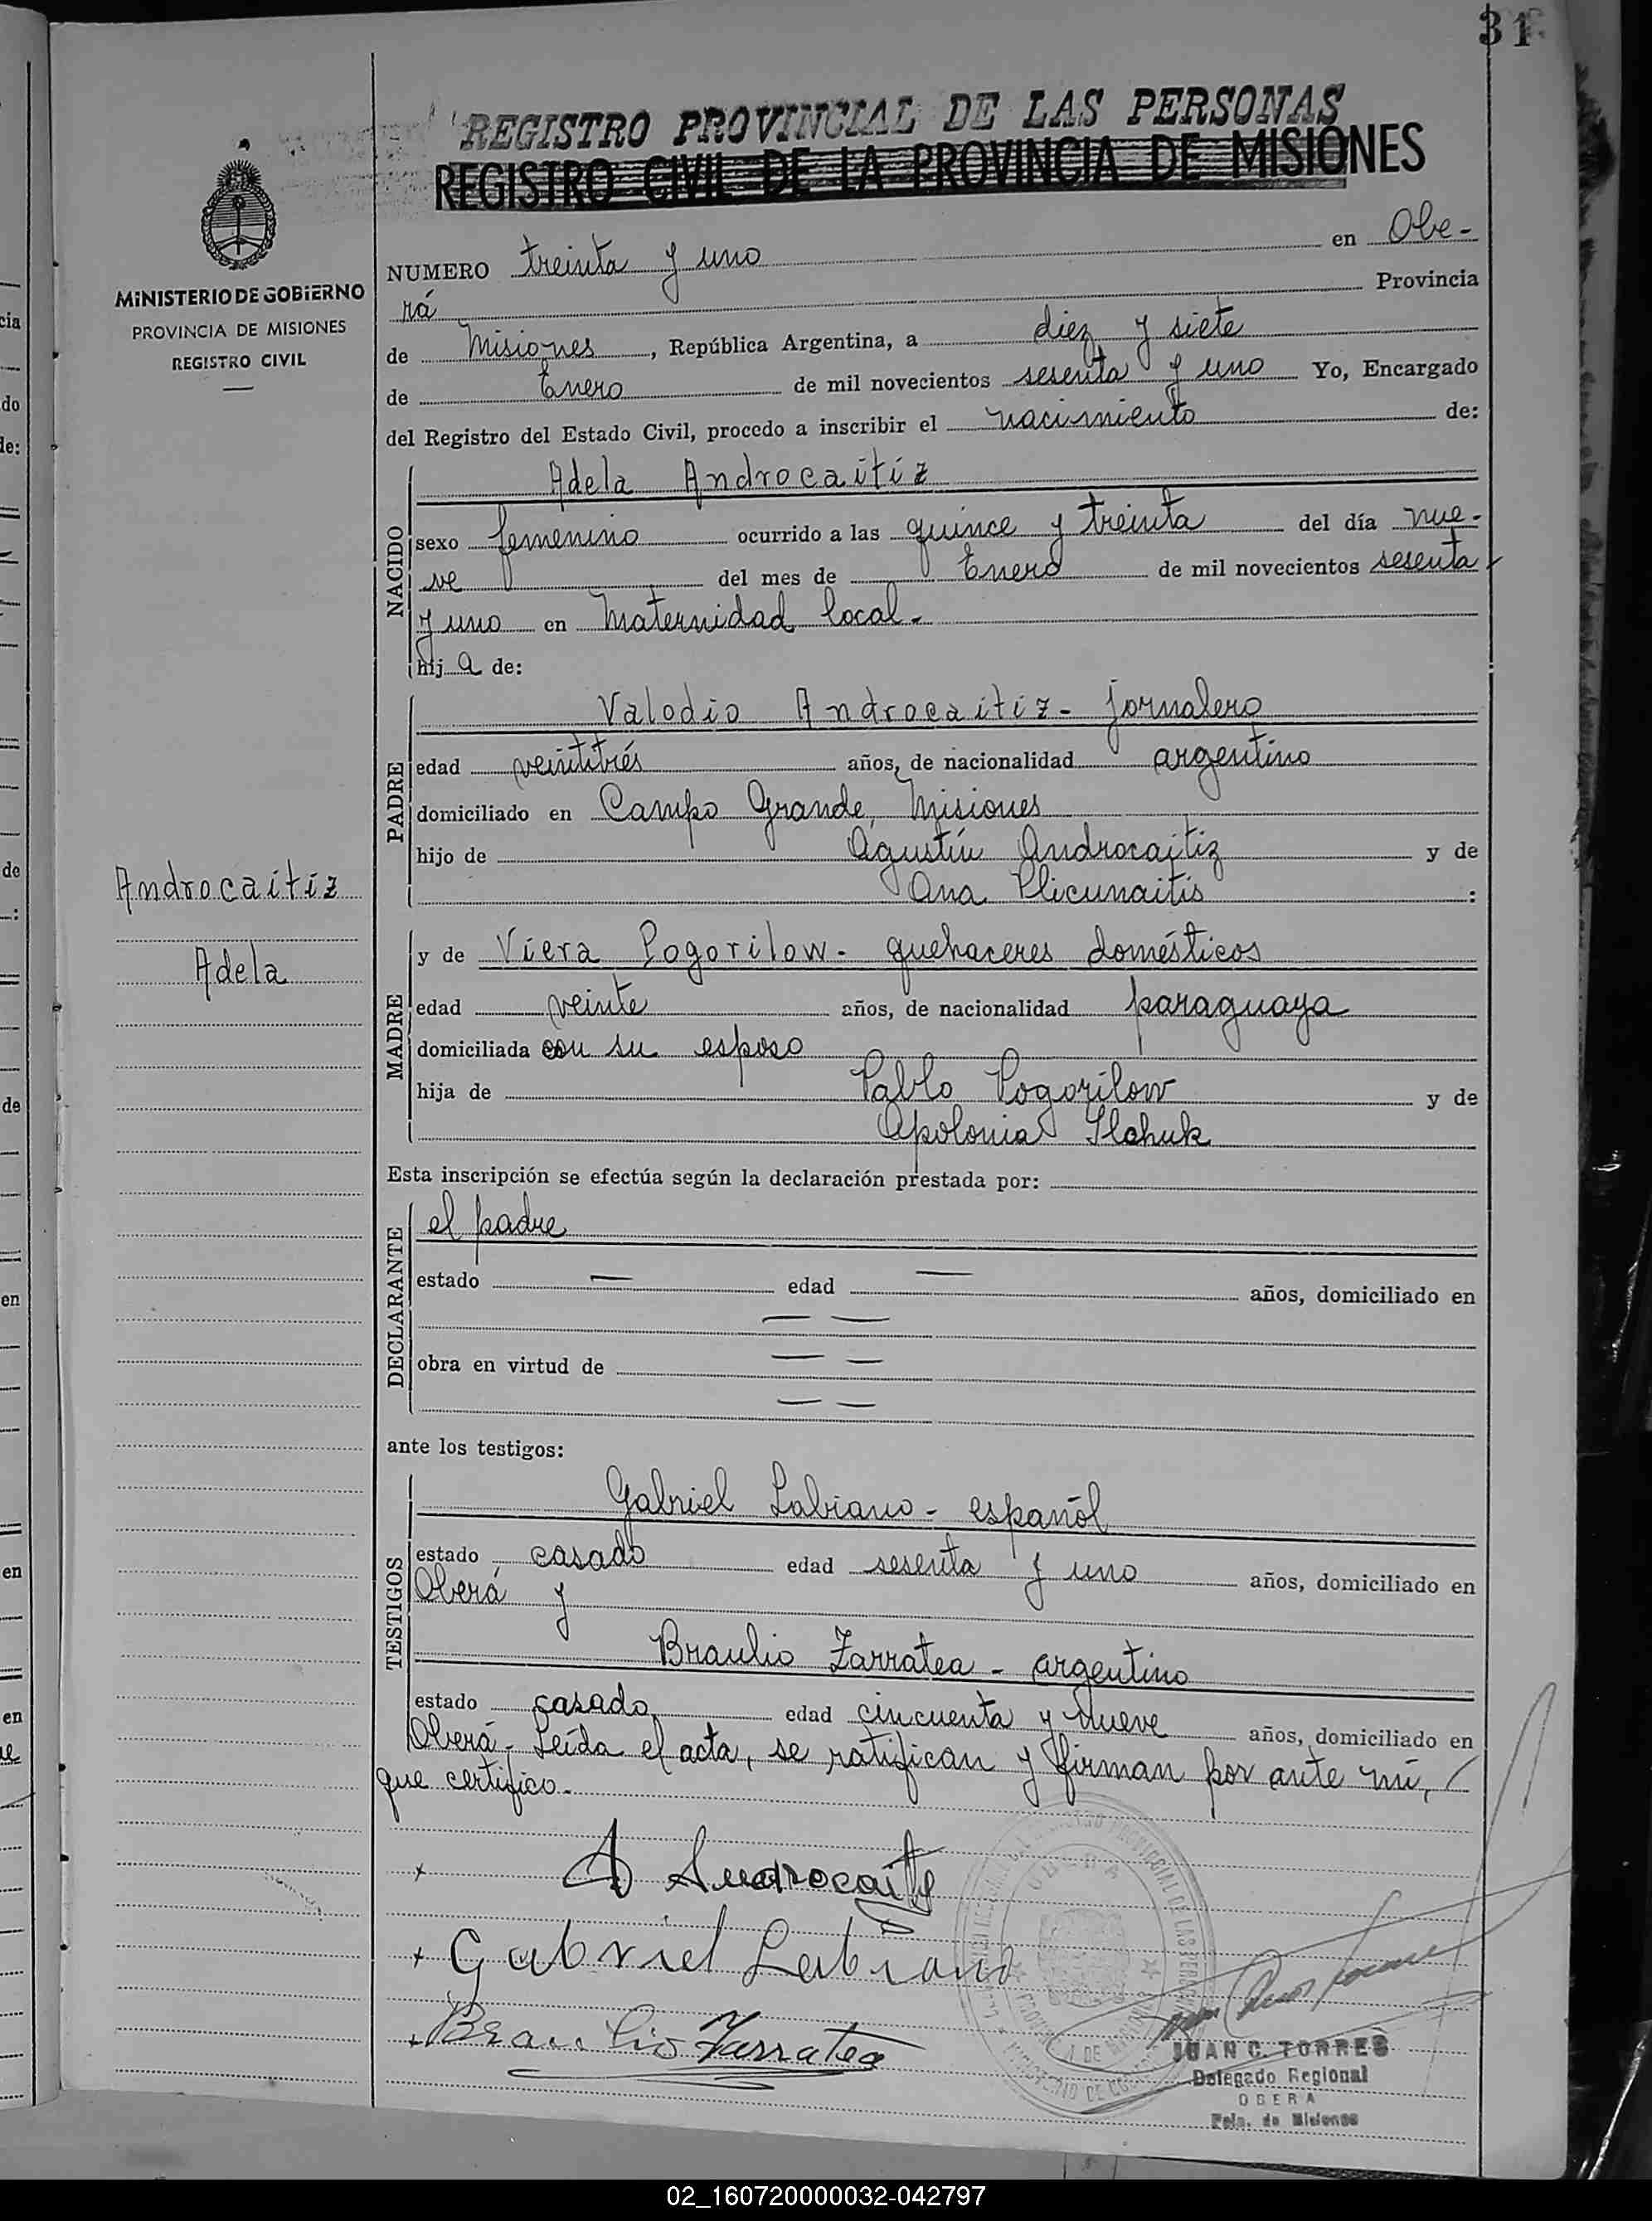 31
REGISTRO PROVINCIAL DE LAS PERSONAS
REGISTRO CIVIL DE LA PROVINCIA DE MISIONES
MINISTERIO DE GOBIERNO
PROVINCIA DE MISIONES
REGISTRO CIVIL
NUMERO treinta y uno en Obe-
rá Provincia
de Misiones, República Argentina, a diez y siete
de Enero de mil novecientos sesenta y uno Yo, Encargado
del Registro del Estado Civil, procedo a inscribir el nacimiento de:
NACIDO
Adela Androcaitiz
sexo femenino ocurrido a las quince y treinta del día nue-
ve del mes de Enero de mil novecientos sesenta
y uno en Maternidad local.-
hija de:
PADRE
Valodio Androcaitiz - jornalero
edad veintitrés años, de nacionalidad argentino
domiciliado en Campo Grande, Misiones
hijo de Agustín Androcaitiz y de
Ana Plicunaitis :
Androcaitiz
Adela
MADRE
y de Viera Pogorilow - quehaceres domésticos
edad veinte años, de nacionalidad paraguaya
domiciliada con su esposo
hija de Pablo Pogorilow y de
Apolonia Ilchuk
Esta inscripción se efectúa según la declaración prestada por:
DECLARANTE
el padre
estado — edad — años, domiciliado en
— —
obra en virtud de — —
— —
ante los testigos:
TESTIGOS
Gabriel Labiano - español
estado casado edad sesenta y uno años, domiciliado en
Oberá y
Braulio Zarratea - argentino
estado casado edad cincuenta y nueve años, domiciliado en
Oberá.- Leída el acta, se ratifican y firman por ante mí,
que certifico.-
A Androcaitiz
Gabriel Labiano
Braulio Zarratea
JUAN C. TORRES
Delegado Regional
OBERA
Pcia. de Misiones
02_160720000032-042797